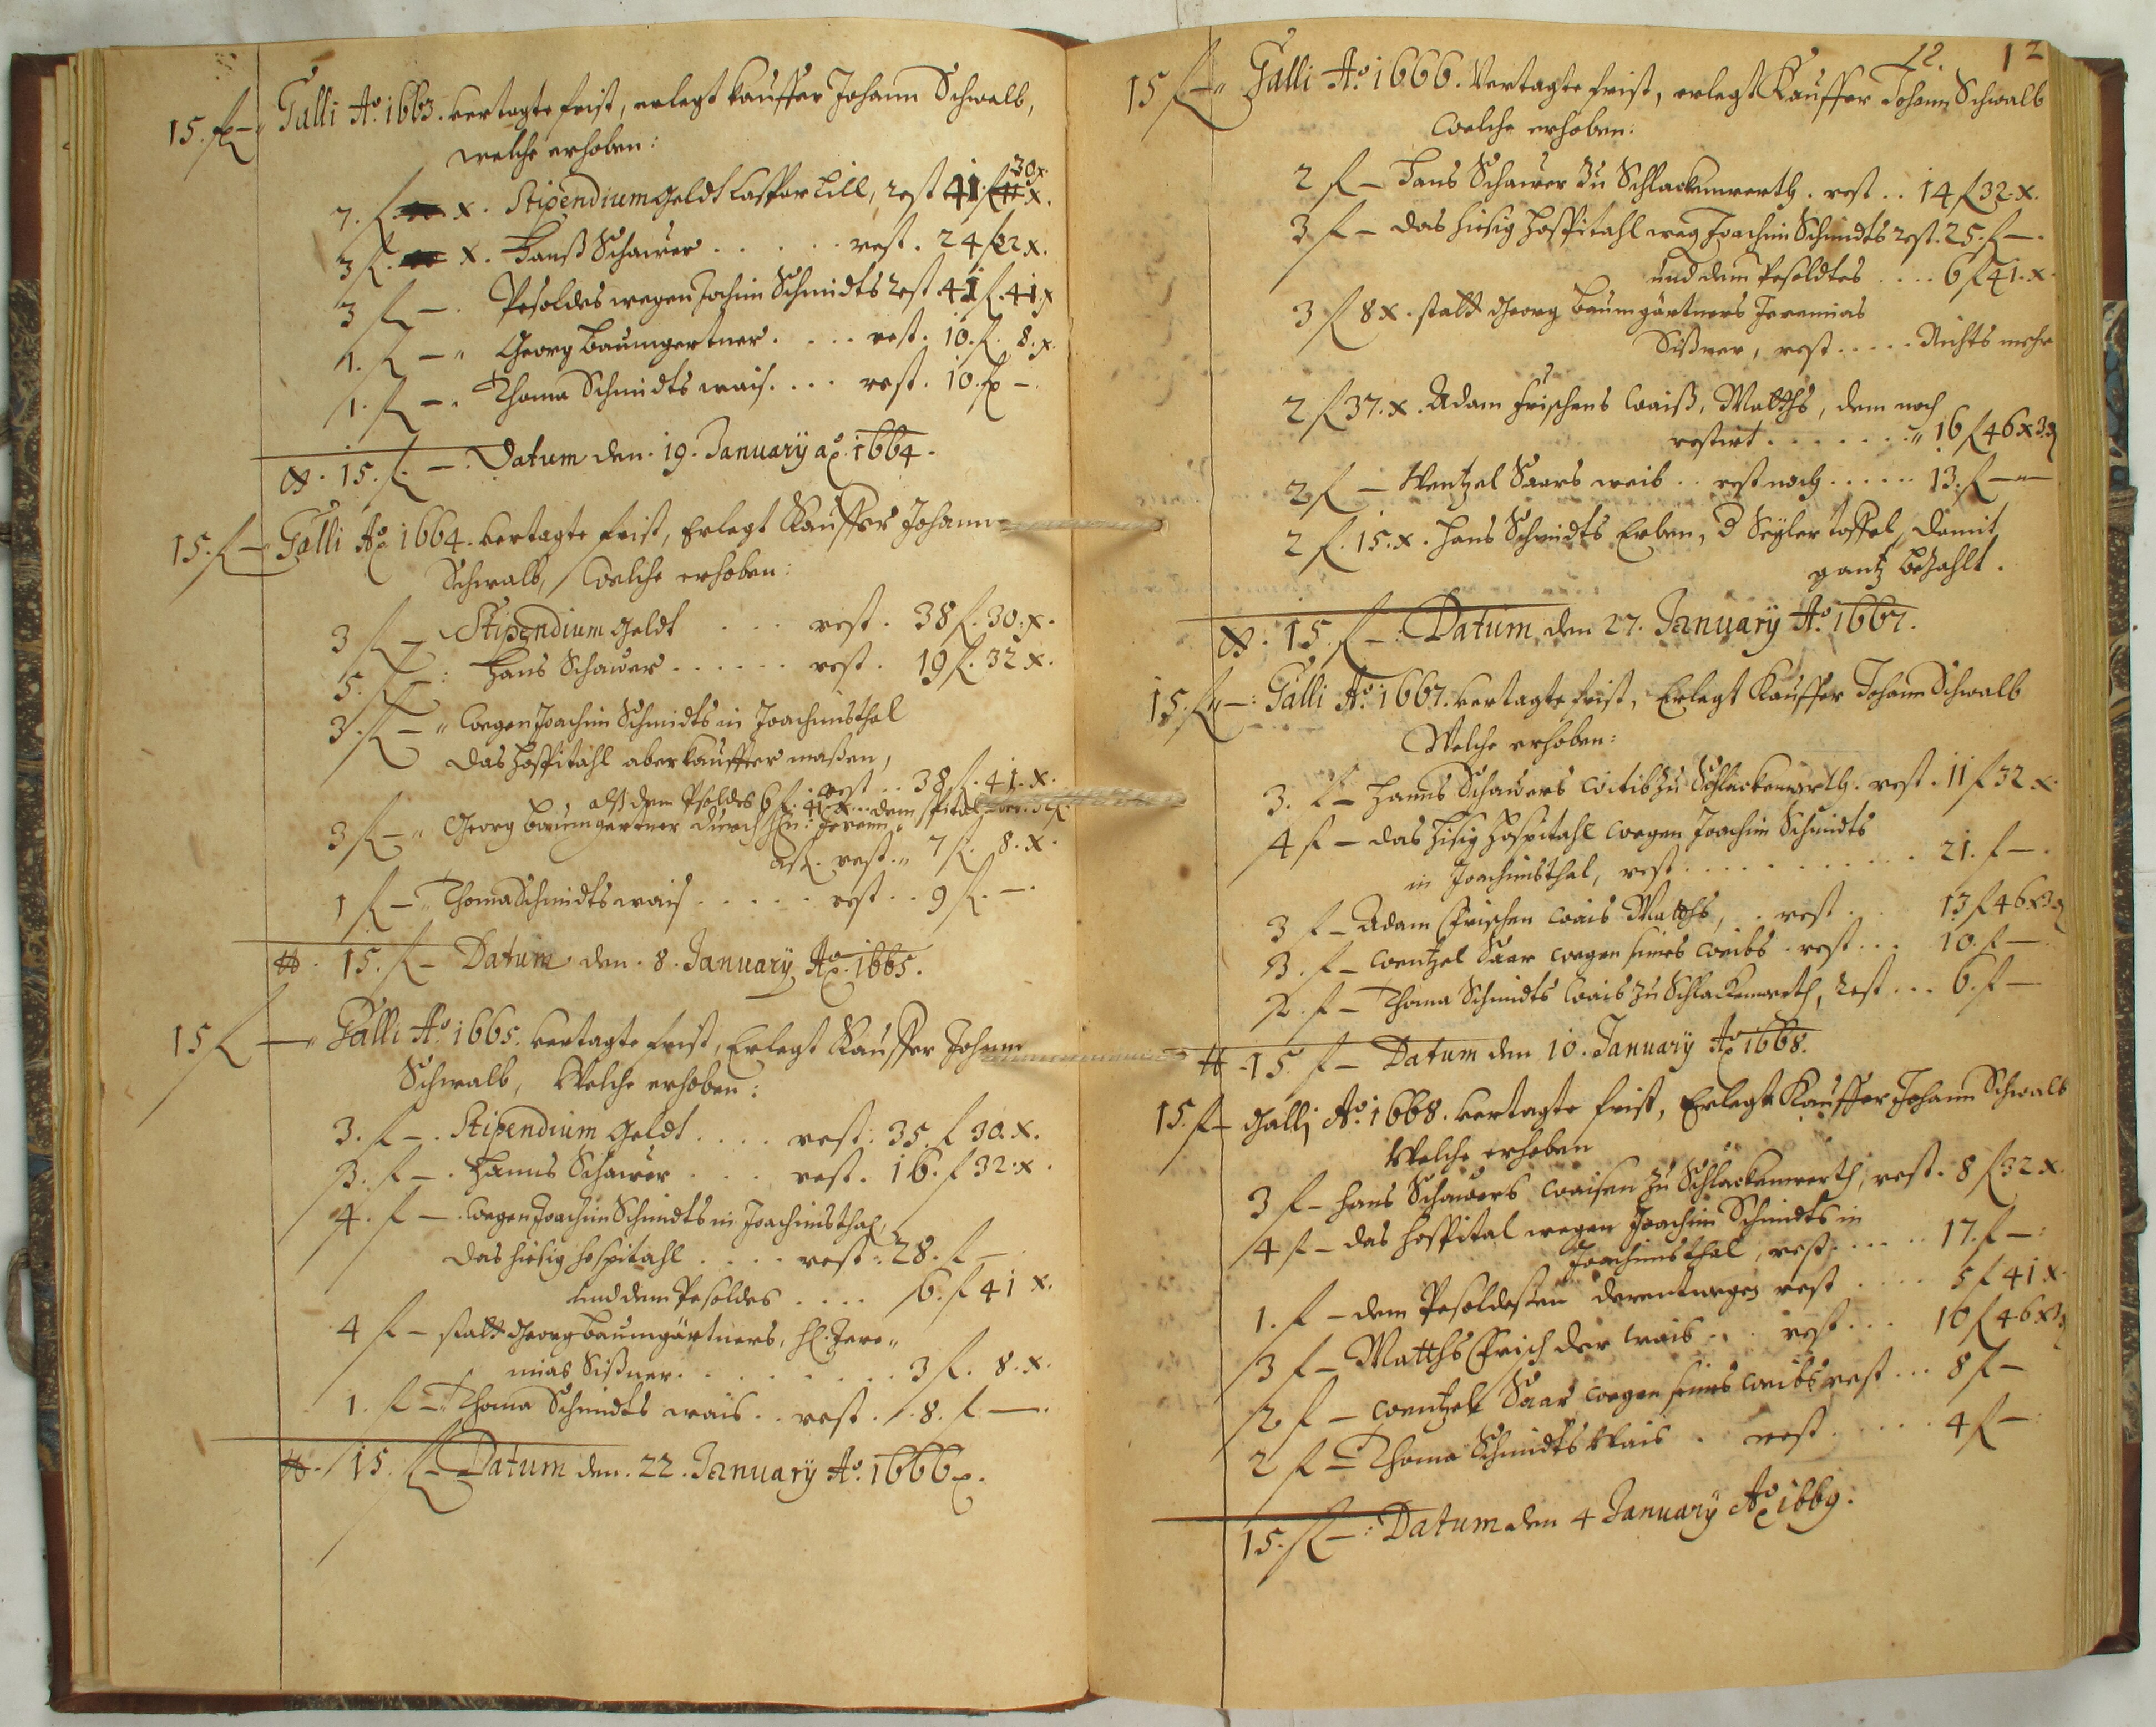 15. f – Galli Ao. 1663. vertagte frist, erlegt kauffer Johann Schwalb,
welche erhoben:
7. f. x. Stipendium Geldt Caspar Lill, rest 41 f 30 x.
3 f. x. Hanß Schawer . . . . . rest. 24 f 32 x.
3 f – . Pesoldes wegen Jochim Schmidts rest 41 f. 41 x
1. f – " Georg Baumgertner . . . . rest. 10. f. 8. x.
1. f – . Thoma Schmidts wais. . . . rest. 10. f –.
15. f. – . Datum den. 19. January ao. 1664.
15. f – Galli Ao. 1664. vertagte frist, Erlegt Kauffer Johann
Schwalb, welche erhoben:
3 f – Stipendium Geldt . . . rest. 38 f. 30. x.
5. f – : Hans Schawer . . . . . . rest. 19 f. 32 x.
3. f – " wegen Joachim Schmidts in Joachimsthal
das Hospitahl aberkauffter maßen,
rest . . 38 f. 41. x.
alß dem Psoldes 6 f. 41 x. dem spital
3 f – " Georg Baumgertner durch
rest. " 7 f. 8. x.
1 f – " Thoma Schmidts wais . . . . . rest . . 9 f. –.
15. f – Datum den. 8. January Ao. 1665.
15 f – " Galli Ao. 1665. vertagte frist, Erlegt Kauffer Johann
Schwalb, Welche erhoben:
3. f – . Stipendium Geldt . . . . rest: 35. f 30. x.
3. f – . Hanns Schawer . . . rest. 16. f 32. x.
4. f – . wegen Joachim Schmidts in Joachimsthal,
das hiesig hospitahl . . . . rest: 28. f –
und dem Pesoldes . . . . 6. f 41 x.
4 f – statt Georg Baumgärtners, H. Jere"
mias Sißner . . . . . . . . . 3 f. 8. x.
1. f – " Thoma Schmidts wais . . rest . . 8. f –.
15. f – Datum den. 22. January Ao. 1666.
12. 12
15 f – " Galli Ao. 1666. Vertagte frist, erlegt Kauffer Johann Schwalb
welche erhoben:
2 f – Hans Schawer zu Schlackenwerth. rest . . 14 f 32. x.
3 f – das hiesig Hospitahl weg Joachim Schmidts rest. 25. f –.
und dem Pesoldtes . . . . 6 f 41. x.
3 f 8 x. statt Georg Baumgärtners Jeremias
Sißner, rest . . . . . Nichts mehr
2 f 37. x. Adam Frischens waiß, Matths, dem noch
restirt . . . . . . . " 16 f 46 x 3
2 f – Wentzel Saars weib . . rest noch . . . . . 13. f –
2 f. 15. x. Hans Schmidts Erben, Seyler toffel, damit
gantz bezahlt.
15. f – . Datum den 27. January Ao. 1667.
15. f – : Galli Ao. 1667. vertagte frist, Erlegt Kauffer Johann Schwalb
Welche erhoben:
3. f – Hanns Schawers witib zu Schlackenwerth. rest. 11 f 32 x.
4 f – das hisig Hospitahl wegen Joachim Schmidts
in Joachimsthal, rest . . . . . . . . . . 21. f –.
3 f – Adam Frischen wais Matths, . rest . . 13 f 46 x 3
3. f – wentzel Saar wegen seines weibs . rest . . . 10. f –.
2. f – Thoma Schmidts wais zu Schlackenwerth, rest . . . 6. f –
15. f – Datum den 10. January Ao 1668.
15. f – Galli Ao. 1668. vertagte frist, Erlegt Kauffer Johann Schwalb
Welche erhoben
3 f – Hans Schawers waisen zu Schlackenwerth, rest. 8 f 32 x.
4 f – das Hospital wegen Joachim Schmidts in
Joachimsthal, rest . . . . . 17. f –.
1. f – dem Pesoldesten derentwegen rest . . . . 5 f 41 x.
3 f – Matths Frisch der wais . . . rest . . . 10 f 46 x 3
2 f – wentzel Saar wegen seines weibs rest . . . 8 f –
2 f – Thoma Schmidts Wais . rest . . . . 4 f –
15. f – : Datum den 4 January Ao 1669.